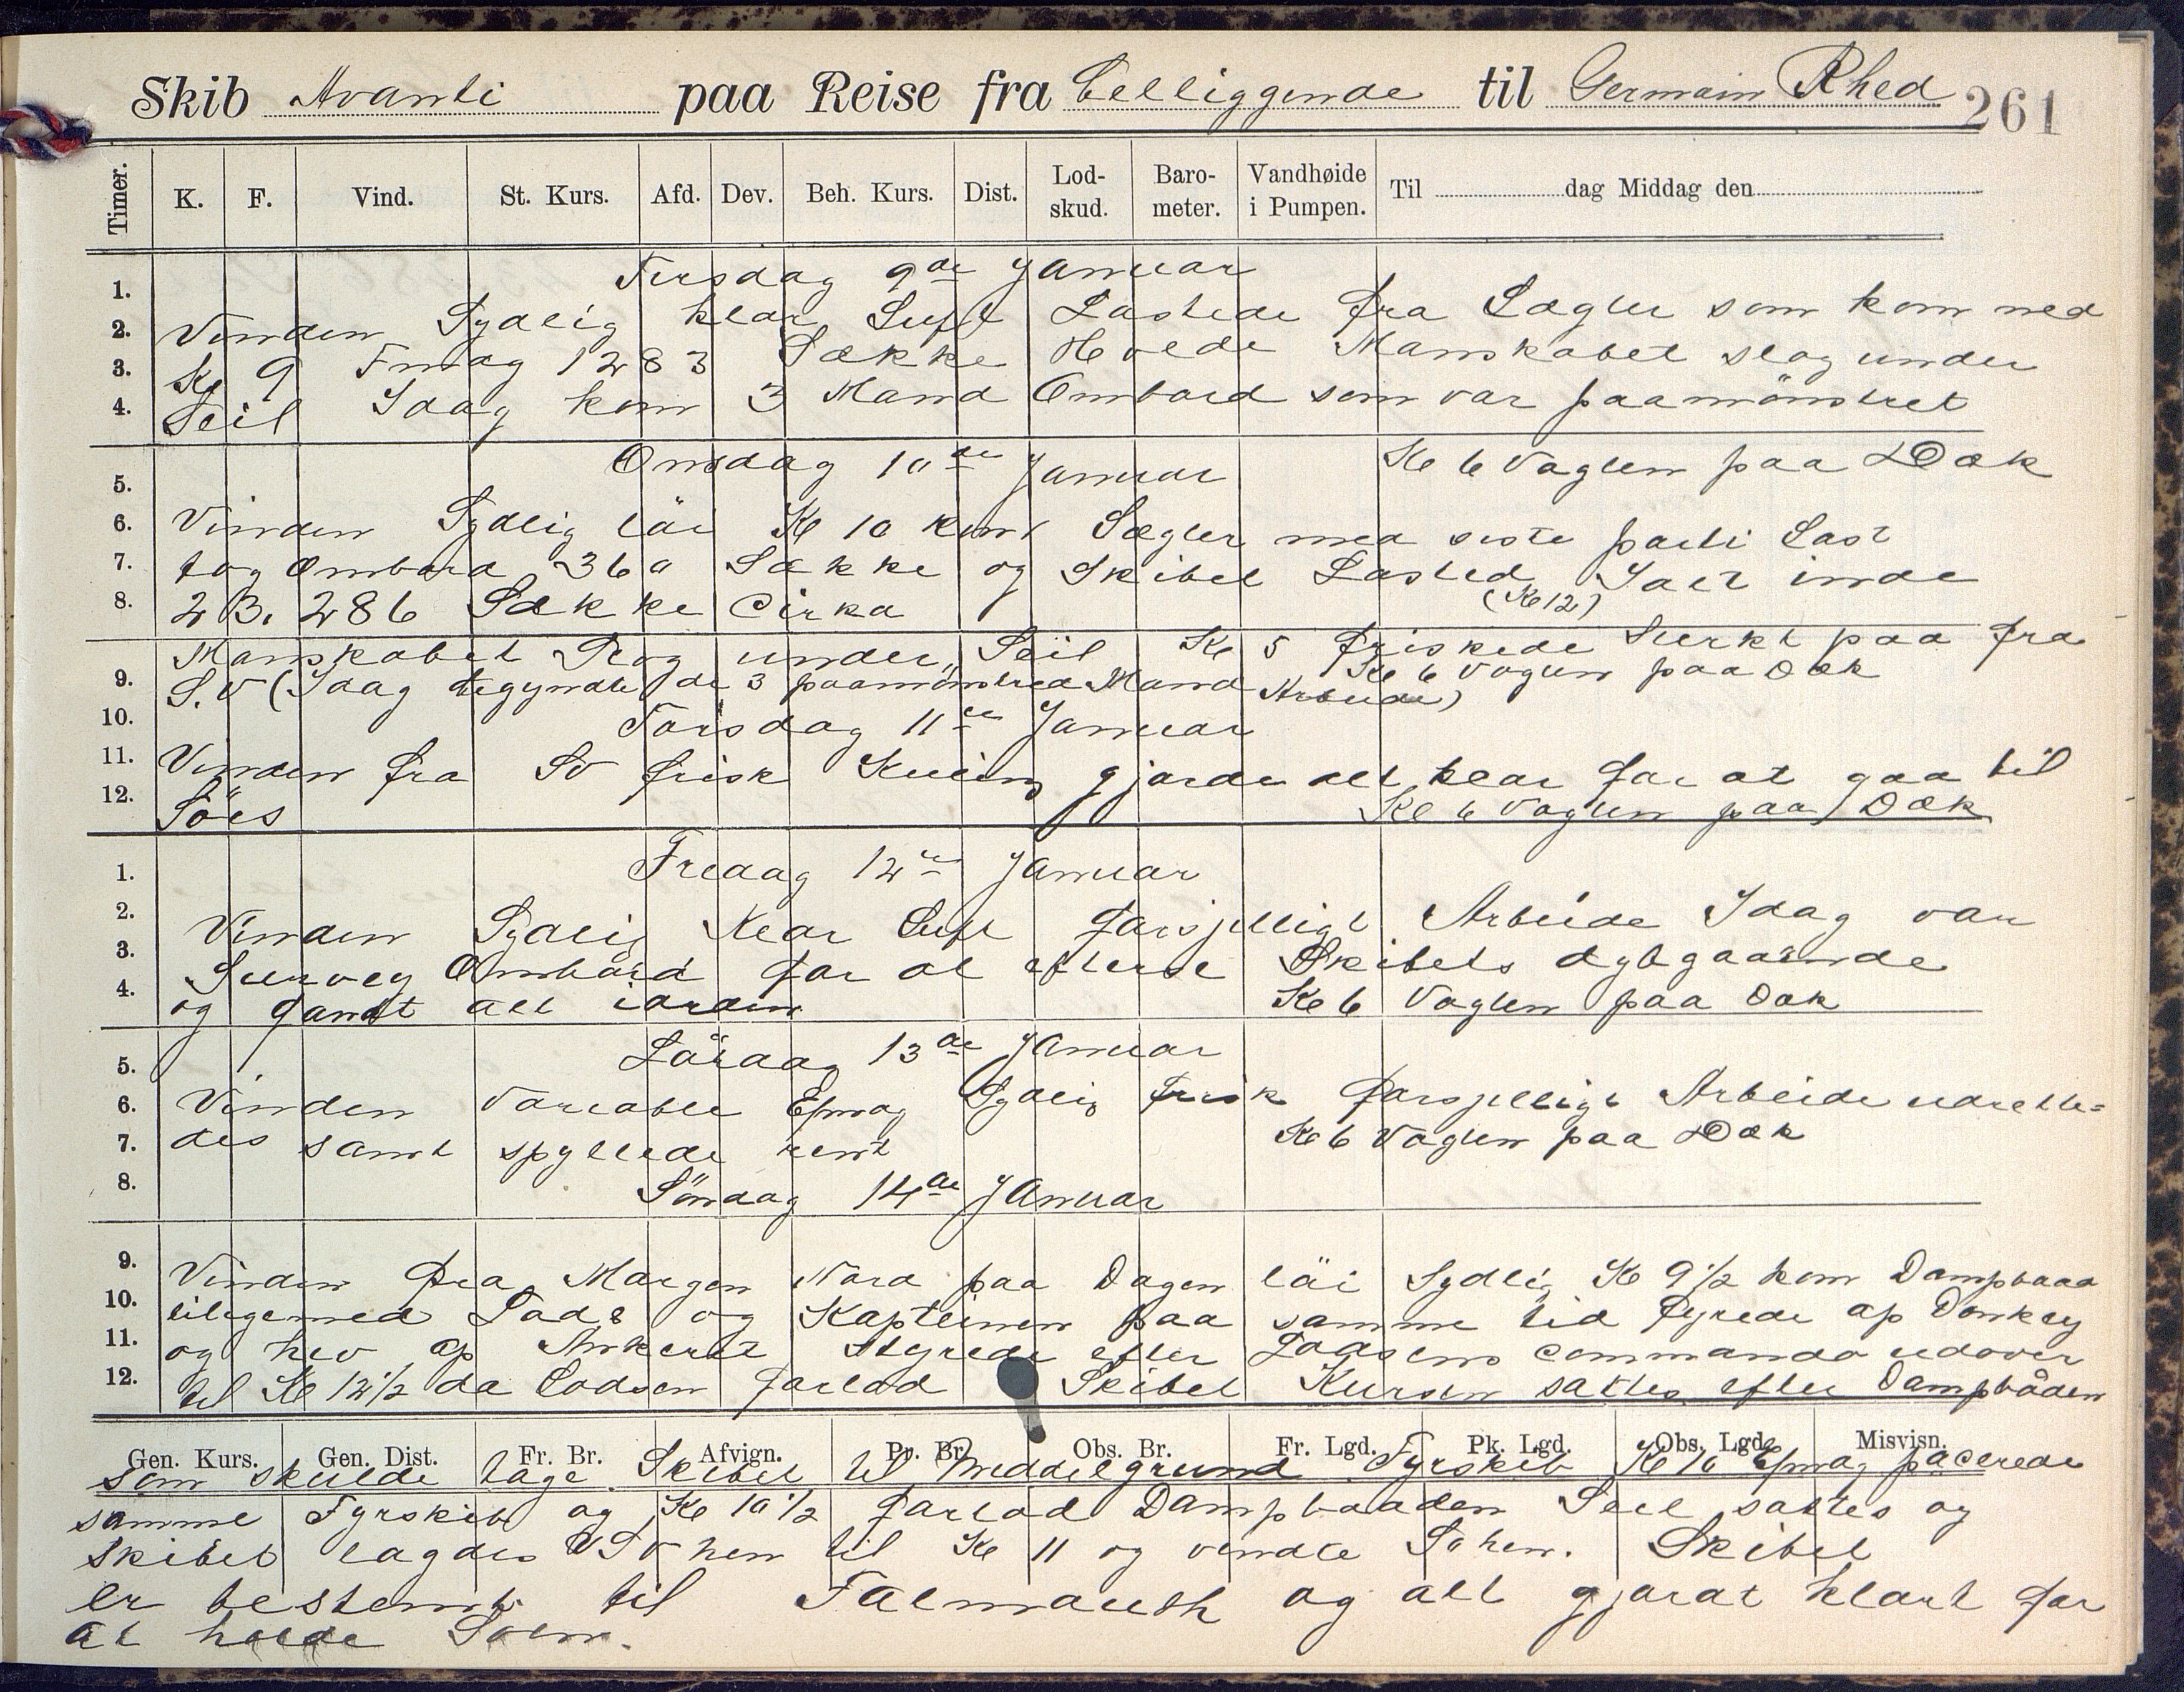 Skib Avanti paa Reise fra Tilliggende til Germain Rhed 261
Timer. K. F. Vind. St. Kurs. Afd. Dev. Beh. Kurs. Dist. Lod-skud. Baro-meter. Vandhøide i Pumpen. Til dag Middag den
Tirsdag 9de Januar
1.
2. Vinden Sydlig klar Luft Lastede fra Lægter som kom ned
3. Kl 9 Fmdag 1283 Sække Hvede Manskabet slog under
4. Seil Idag kom 3 Mand Ombord som var paamönstret
Onsdag 10de Januar Kl 6 Vagten paa Dæk
5.
6. Vinden Sydlig löi Kl 10 kom Lægter med siste parti Last
7. tog Ombord 360 Sække og Skibet Lasted Ialt inde
8. 23.286 Sække Cirka (Kl 12)
Manskabet Slog under Seil Kl 5 friskede Sterkt paa fra
9. S.V (Idag begyndte de 3 paamönstred Mand Arbeide) Kl 6 Vagten paa Dæk
10. Torsdag 11te Januar
11. Vinden fra SV frisk Kuling gjorde alt klar for at gaa til
12. Söes Kl 6 Vagten paa Dæk
1. Fredag 12te Januar
2. Vinden Sydlig Klar Luft forsjelligt Arbeide Idag var
3. Survey Ombord for at efterse Skibets dybgaaende
4. og fandt alt iorden Kl 6 Vagten paa Dæk
5. Lördag 13de Januar
6. Vinden Variable Efmdag Sydlig frisk forsjelligt Arbeide udrette=
7. des samt spyllede rent Kl 6 Vagten paa Dæk
8. Söndag 14de Januar
9. Vinden fra Morgen Nord paa Dagen löi Sydlig Kl 9 1/2 kom Dampbaad
10. tilligemed Lods og Kapteinen paa samme tid fyrede op Donkey
11. og hev op Ankeret Styrede efter Lodsens commando udover
12. til Kl 12 1/2 da Lodsen forlod Skibet Kursen sattes efter Dampbåden
Gen. Kurs. Gen. Dist. Fr. Br. Afvign. Pr. Br. Obs. Br. Fr. Lgd. Pk. Lgd. Obs. Lgd. Misvisn.
som skulde tage Skibet til Meddelgrund Fyrskib Kl 10 Efmdag pacerede
samme Fyrskib og Kl 10 1/2 forlod Dampbaaden Seil sattes og
skibet lagdes VSV hen til Kl 11 og vendte SO hen. Skibet
er bestemt til Falmouth og alt gjordt klart for
at holde Söen.